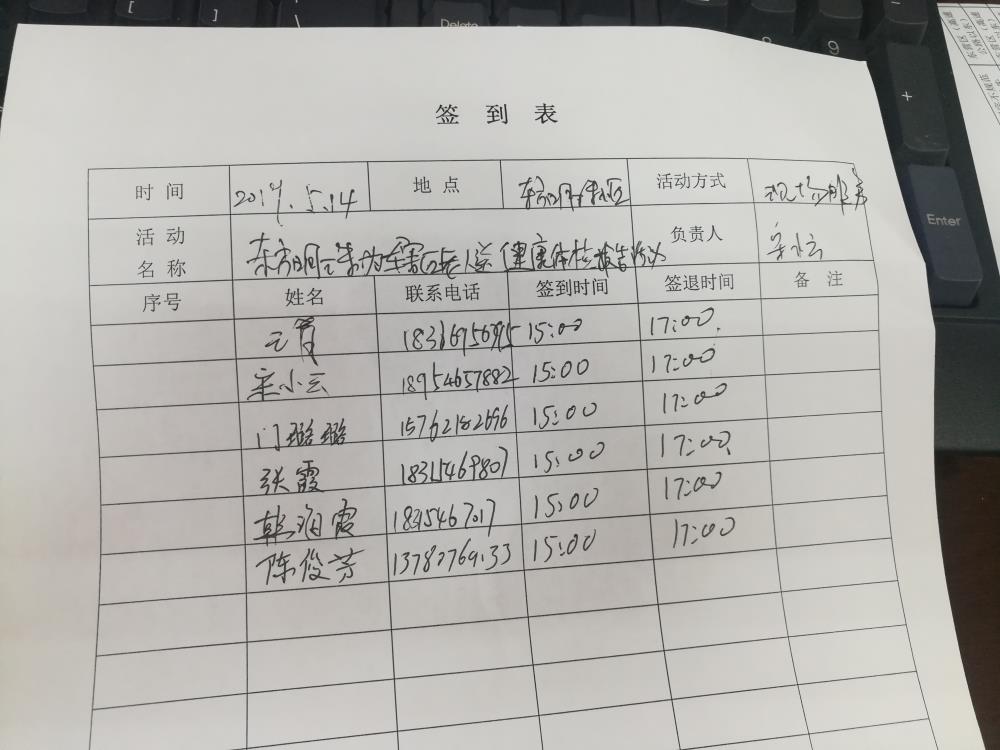 Delete
Enter
签到表
时间 2019.5.14 地点 活动方式 现场服务
活动名称 东方明珠为辖区老人送健康体检报告活动 负责人 宋小云
序号 姓名 联系电话 签到时间 签退时间 备注
15:00 17:00
宋小云 18954657882 15:00 17:00
门璐璐 15762182696 15:00 17:00
张霞 18315469807 15:00 17:00
韩海霞 15:00 17:00
陈俊芳 15:00 17:00